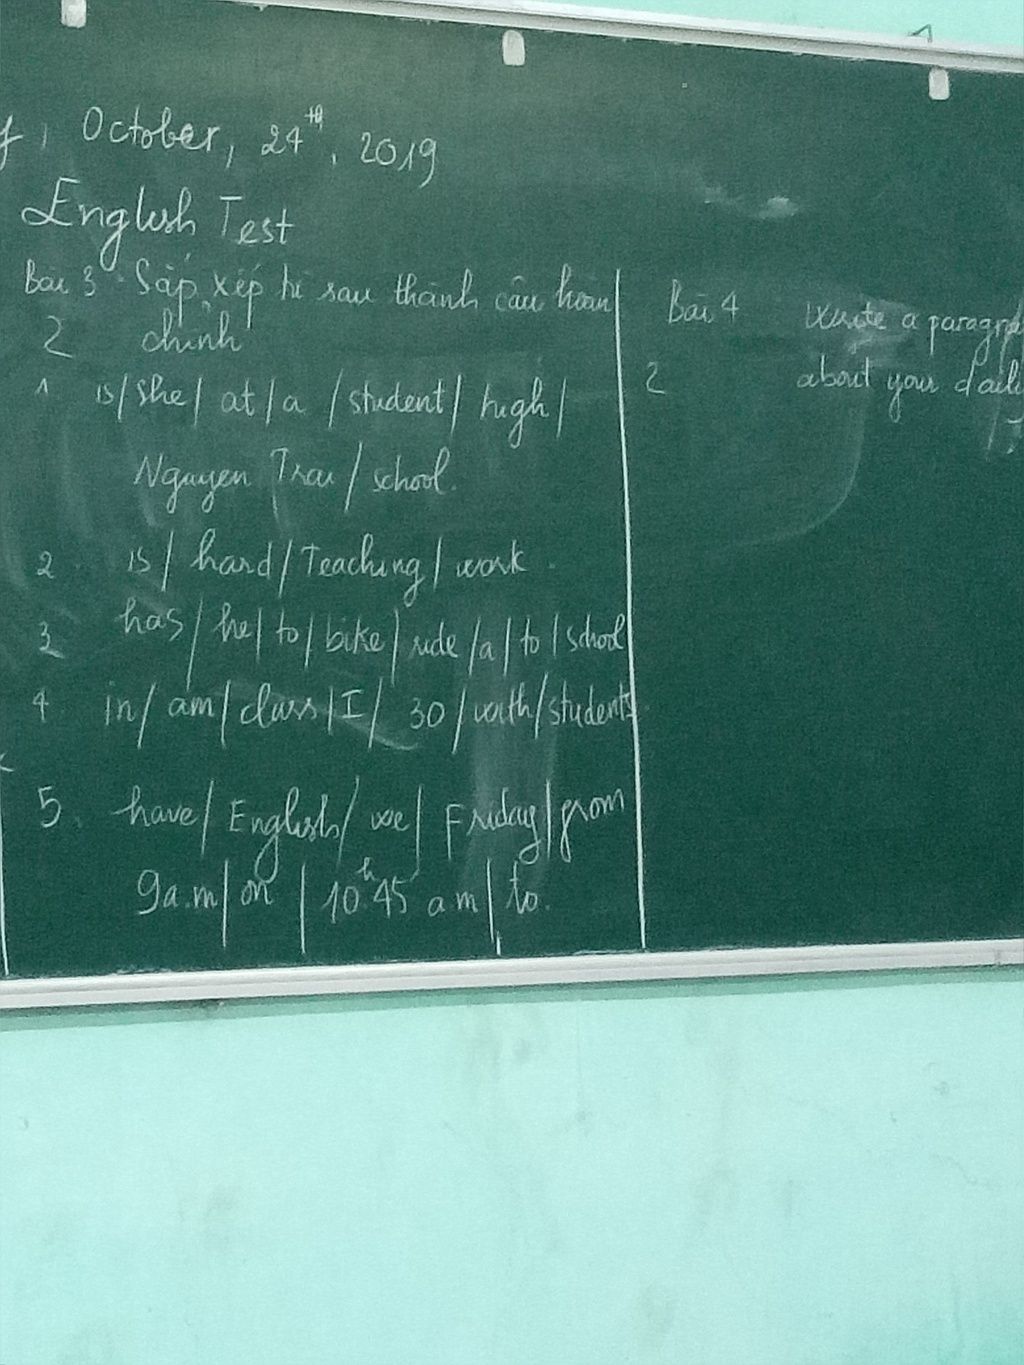 , October, 24th, 2019
English Test
Bài 3 Sắp xếp từ sau thành câu hoàn
2 chỉnh
1 is/ she/ at/ a / student/ high/
Nguyen Trai / school.
2 is/ hard/ Teaching/ work.
3 has/ he/ to/ bike/ ride /a/ to/ school
4 in/ am/ class/ I/ 30 / with/ students
5. have/ English/ we/ Friday/ from
9a.m/ on / 10h45 a.m/ to.
Bài 4 Write a paragra
2 about your dail